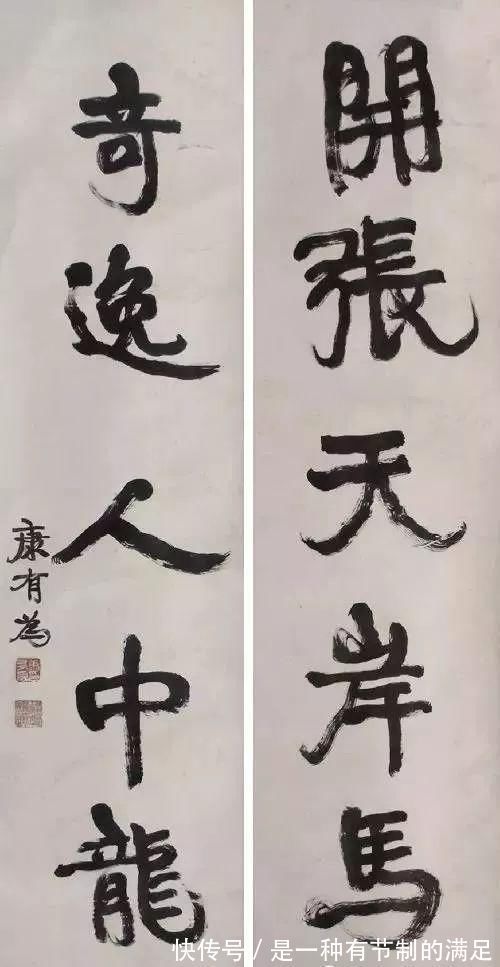 開張天岸馬
奇逸人中龍
康有為
快传号/是一种有节制的满足